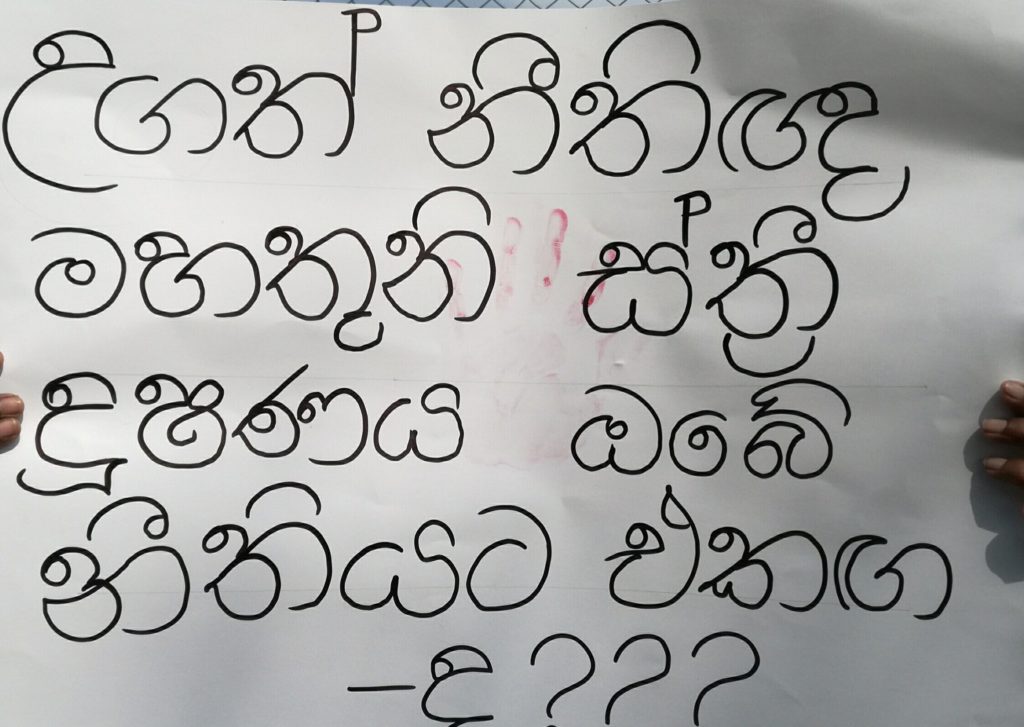 උගත් නීතිඥ
මහතුනි ස්ත්‍රී
දූෂණය ඔබේ
නීතියට ඒකඟ
-ද ???